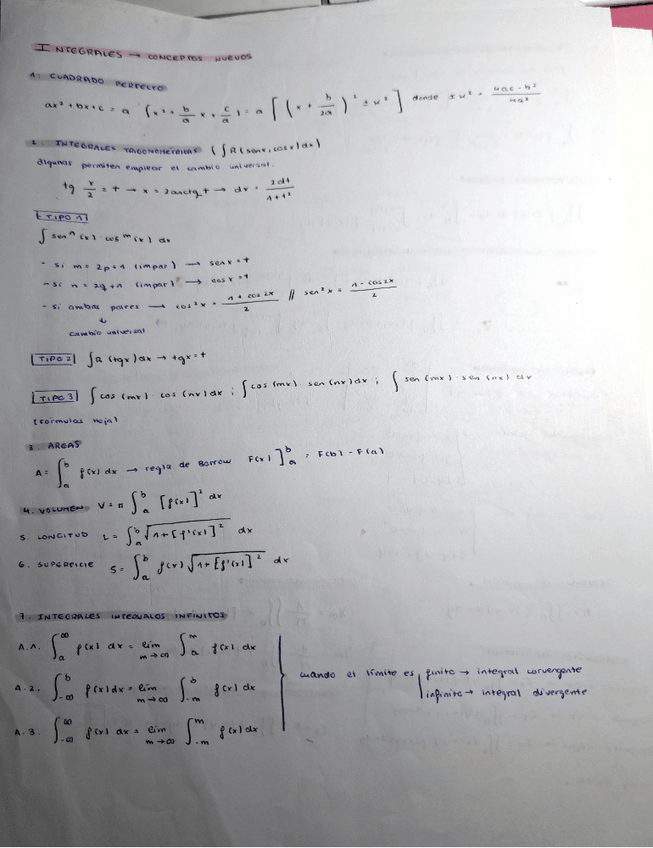 INTEGRALES → CONCEPTOS NUEVOS
1. CUADRADO PERFECTO
ax² + bx + c = a (x² + b/a x + c/a) = a [(x + b/2a)² ± w²] donde ± w² = 4ac - b² / 4a²
2. INTEGRALES TRIGONOMÉTRICAS (∫R(senx, cosx)dx)
algunas permiten emplear el cambio universal.
tg x/2 = t → x = 2arctg t → dx = 2dt / 1+t²
TIPO 1
∫ senⁿ(x) cosᵐ(x) dx
- si m = 2p+1 (impar) → senx = t
- si n = 2q+1 (impar) → cosx = t
- si ambas pares → cos²x = 1 + cos 2x / 2 // sen²x = 1 - cos2x / 2
↓
cambio universal
TIPO 2 ∫R (tgx) dx → tgx = t
TIPO 3 ∫cos (mx) cos (nx) dx ; ∫cos (mx) sen (nx) dx ; ∫ sen (mx) · sen (nx) dx
(fórmulas hoja)
3. AREAS
A = ∫ₐᵇ f(x) dx → regla de Borrow F(x) ]ₐᵇ = F(b) - F(a)
4. VOLUMEN V = π ∫ₐᵇ [f(x)]² dx
5. LONGITUD L = ∫ₐᵇ √(1 + [f'(x)]²) dx
6. SUPERFICIE S = ∫ₐᵇ f(x) √(1 + [f'(x)]²) dx
7. INTEGRALES INTERVALOS INFINITOS
A.1. ∫ₐ^∞ f(x) dx = lim m→∞ ∫ₐᵐ f(x) dx
cuando el límite es finito → integral convergente
infinito → integral divergente
A.2. ∫₋∞ᵇ f(x) dx = lim m→∞ ∫₋ₘᵇ f(x) dx
A.3. ∫₋∞^∞ f(x) dx = lim m→∞ ∫₋ₘᵐ f(x) dx